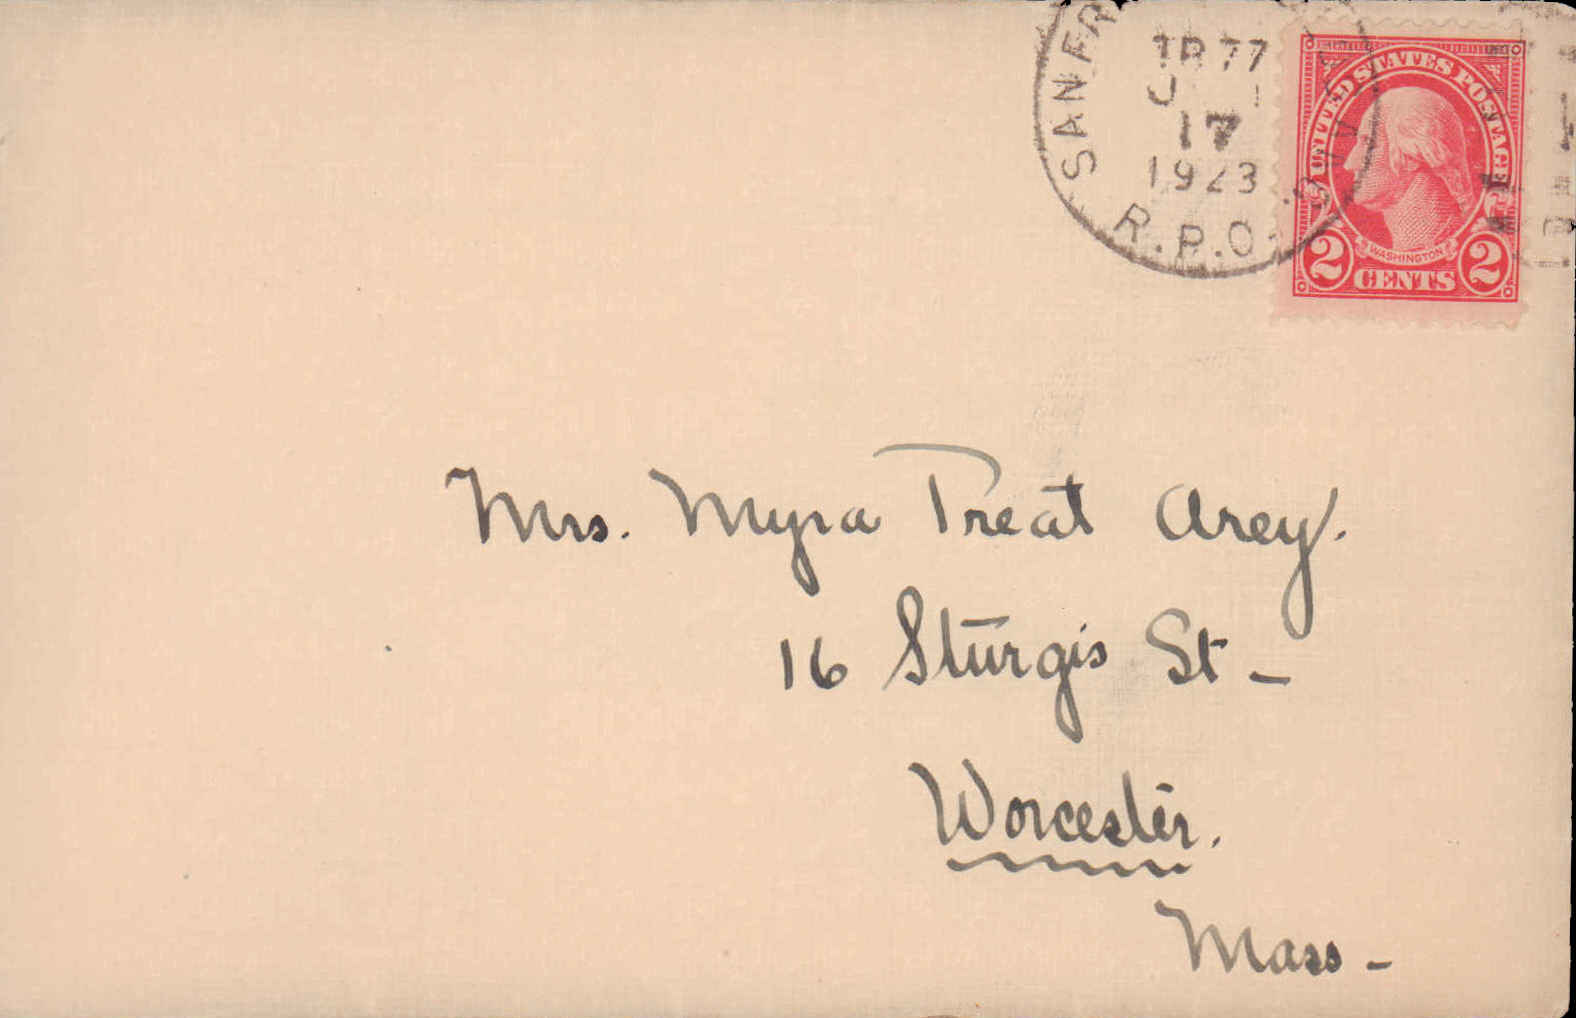 SAN FR
TR 77
17
1923
R.P.O.
UNITED STATES POSTAGE
WASHINGTON
2 CENTS 2
Mrs. Myra Treat Arey.
16 Sturgis St -
Worcester.
Mass -